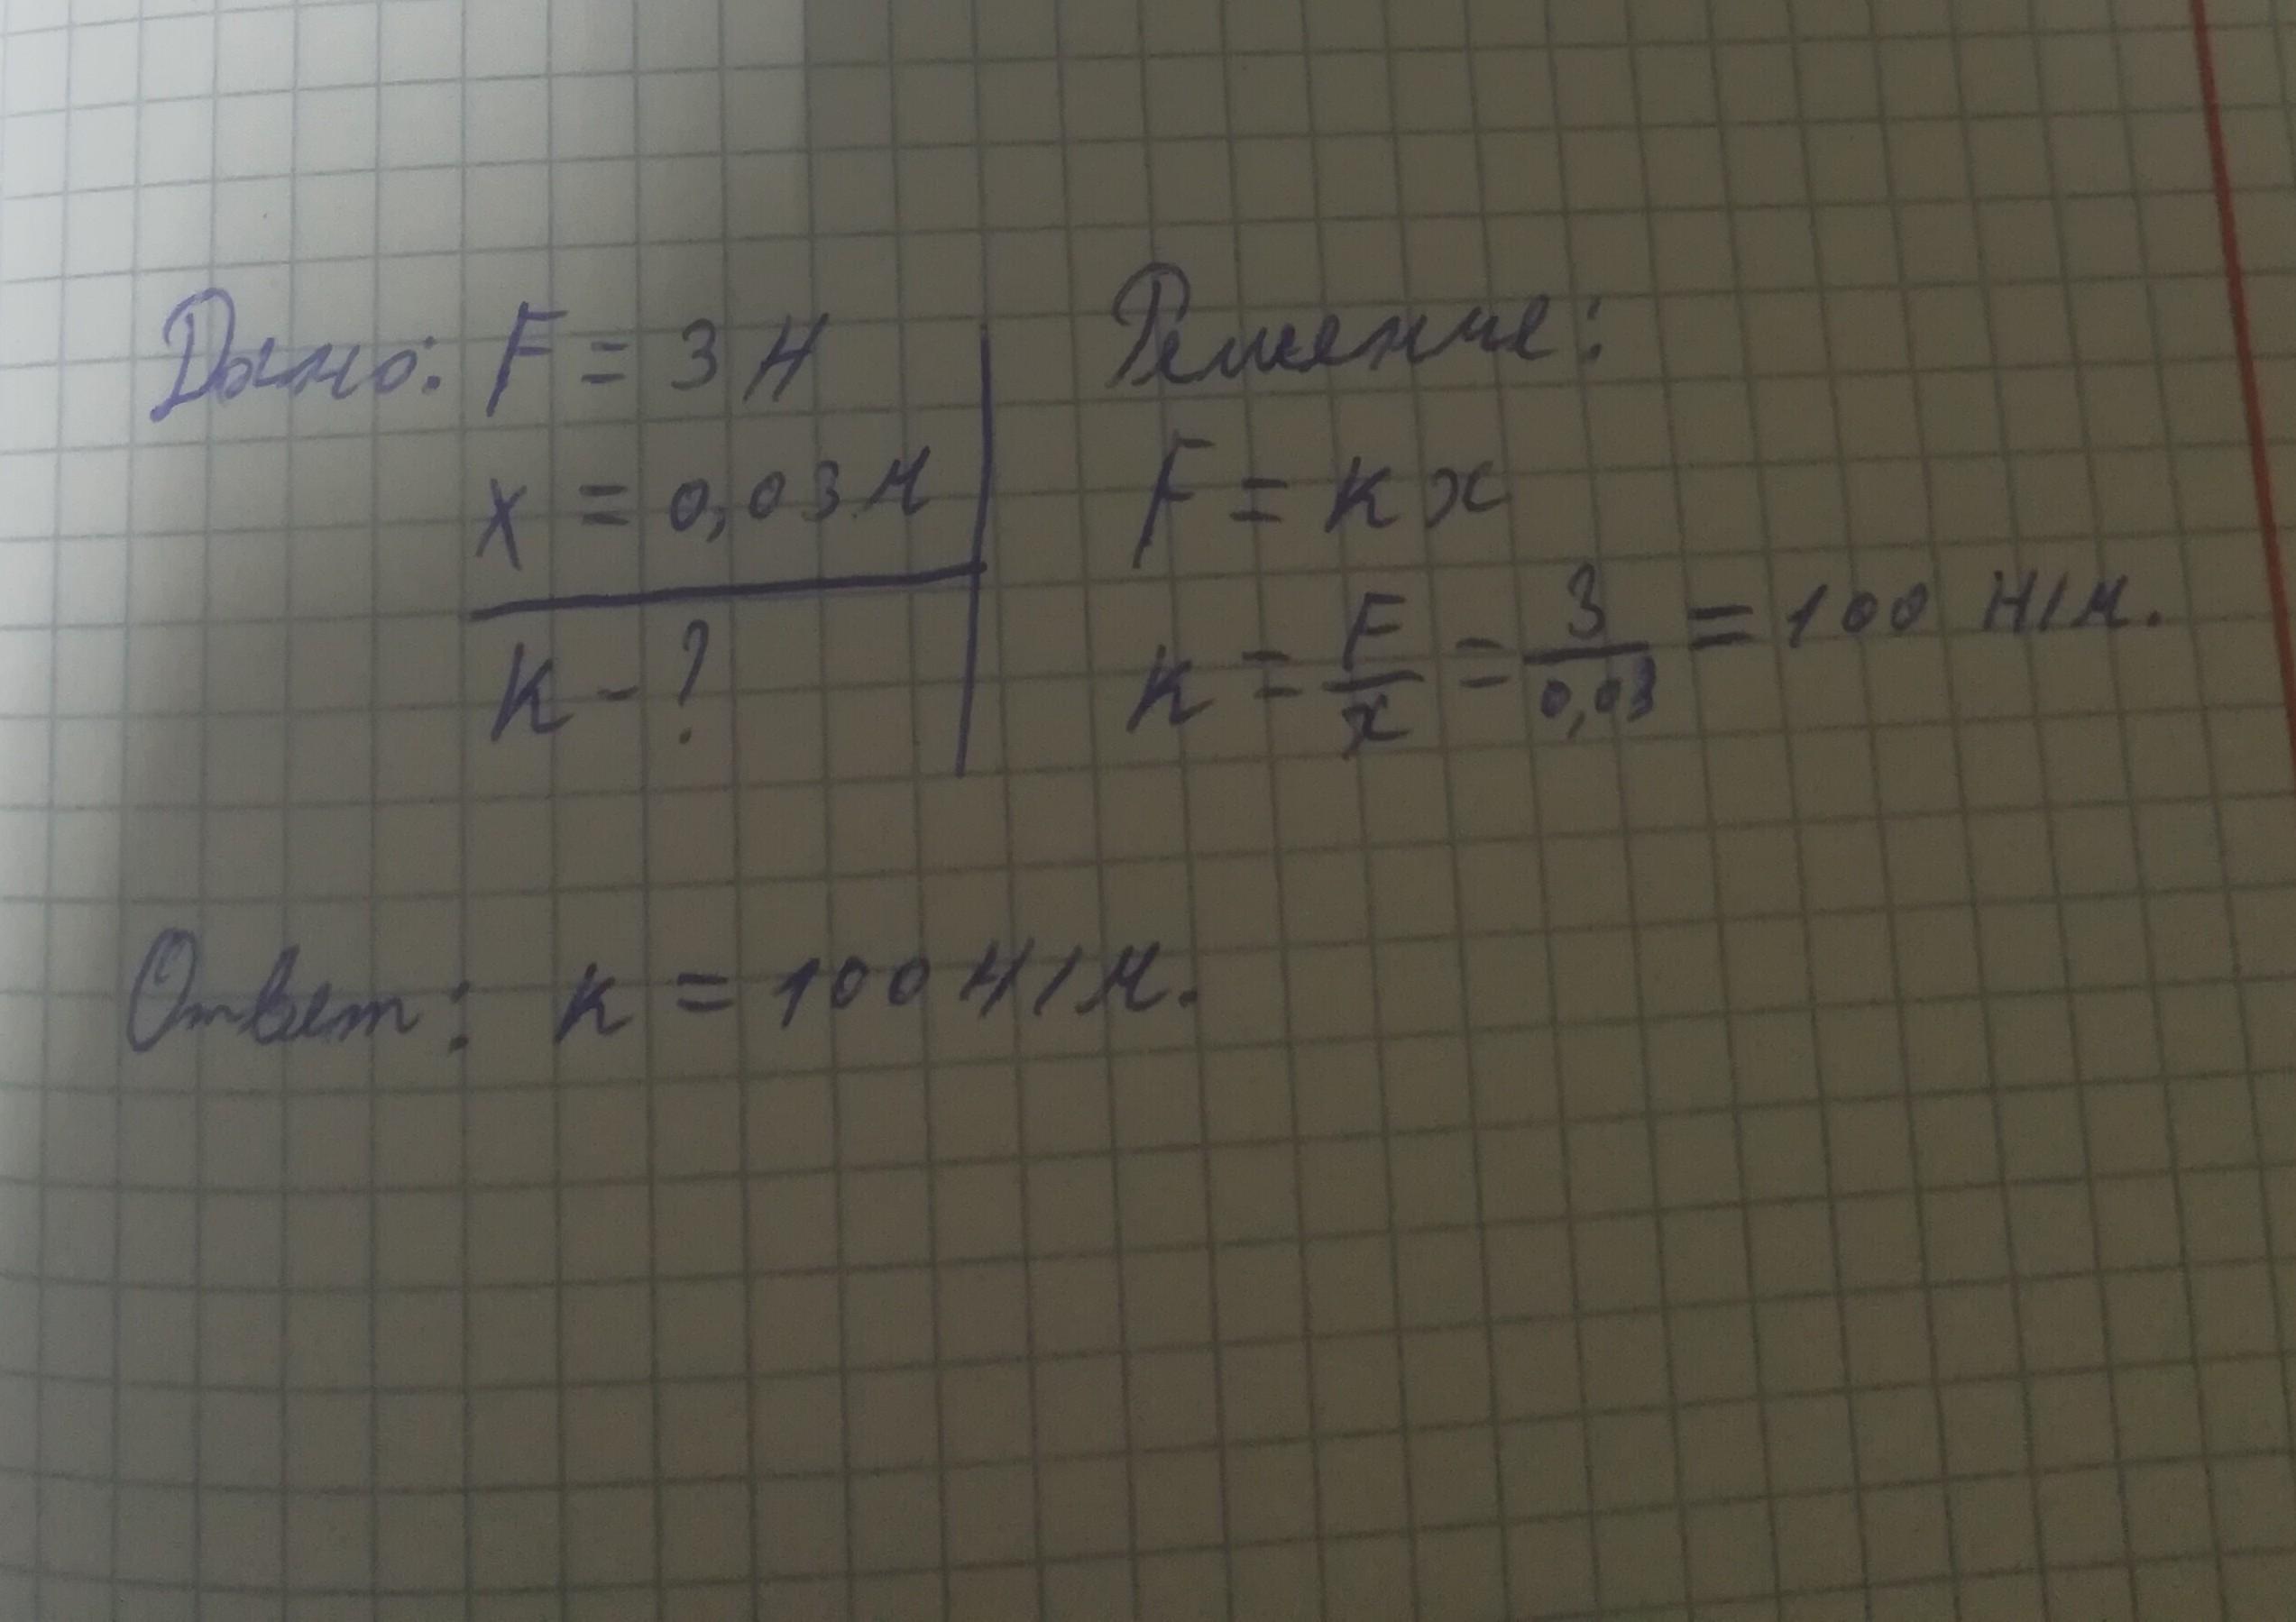 Дано: F = 3 Н
x = 0,03 м
k - ?
Решение:
F = k x
k = F/x = 3/0,03 = 100 Н/м.
Ответ: k = 100 Н/м.